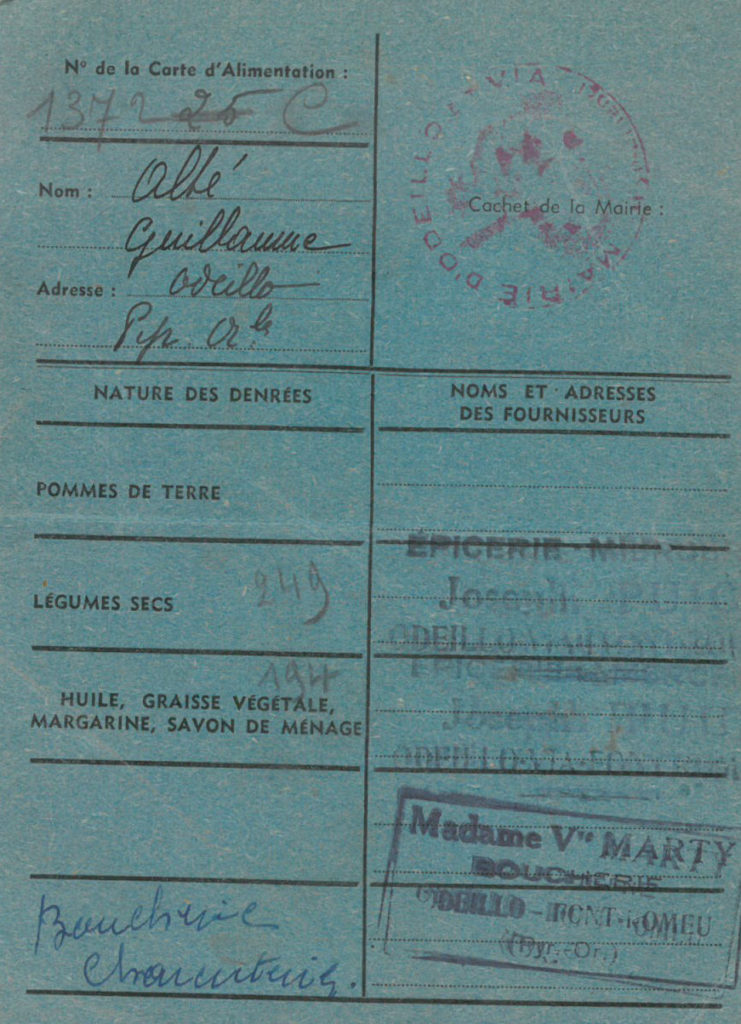 N° de la Carte d'Alimentation :
1372 25 C
Nom : Albé
Guillaume
Adresse : Odeillo
Pyr. Or.les
MAIRIE D'ODEILLO-VIA
Cachet de la Mairie :
NATURE DES DENRÉES
NOMS ET ADRESSES
DES FOURNISSEURS
POMMES DE TERRE
LÉGUMES SECS
249
ÉPICERIE - MERCERIE
Joseph
ODEILLO-VIA-FONT-ROMEU
194
HUILE, GRAISSE VÉGÉTALE,
MARGARINE, SAVON DE MÉNAGE
Joseph
ODEILLO-VIA-FONT-ROMEU
Boucherie
Charcuterie.
Madame Vve MARTY
BOUCHERIE
ODEILLO - FONT-ROMEU
(Pyr.-Or.)